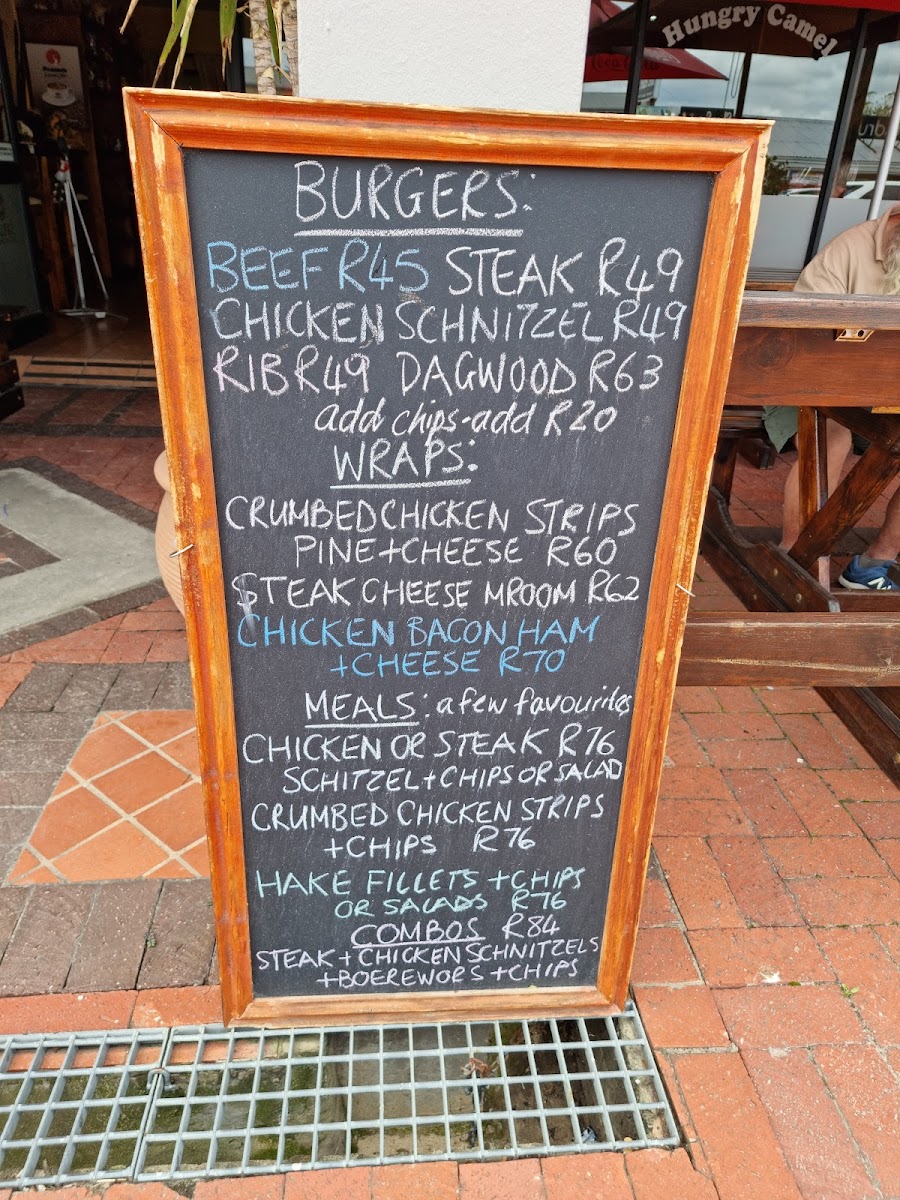 Hungry Camel
BURGERS:
BEEF R45 STEAK R49
CHICKEN SCHNITZEL R49
RIB R49 DAGWOOD R63
add chips-add R20
WRAPS:
CRUMBED CHICKEN STRIPS
PINE+CHEESE R60
STEAK CHEESE MROOM R62
CHICKEN BACON HAM
+CHEESE R70
MEALS: a few favourites
CHICKEN OR STEAK R76
SCHITZEL+CHIPS OR SALAD
CRUMBED CHICKEN STRIPS
+CHIPS R76
HAKE FILLETS +CHIPS
OR SALADS R76
COMBOS R84
STEAK+CHICKEN SCHNITZELS
+BOEREWORS+CHIPS